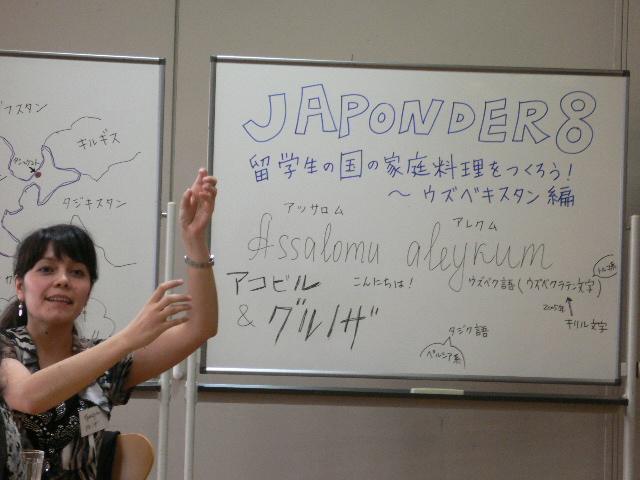 JAPONDER 8
留学生の国の家庭料理をつくろう!
～ウズベキスタン編
アッサロム アレクム
Assalomu aleykum
アコビル こんにちは! ウズベク語(ウズベクラテン文字)
& グルノザ
2005年
キリル文字
タジク語
ペルシア系
キルギス
タシュケント
タジキスタン